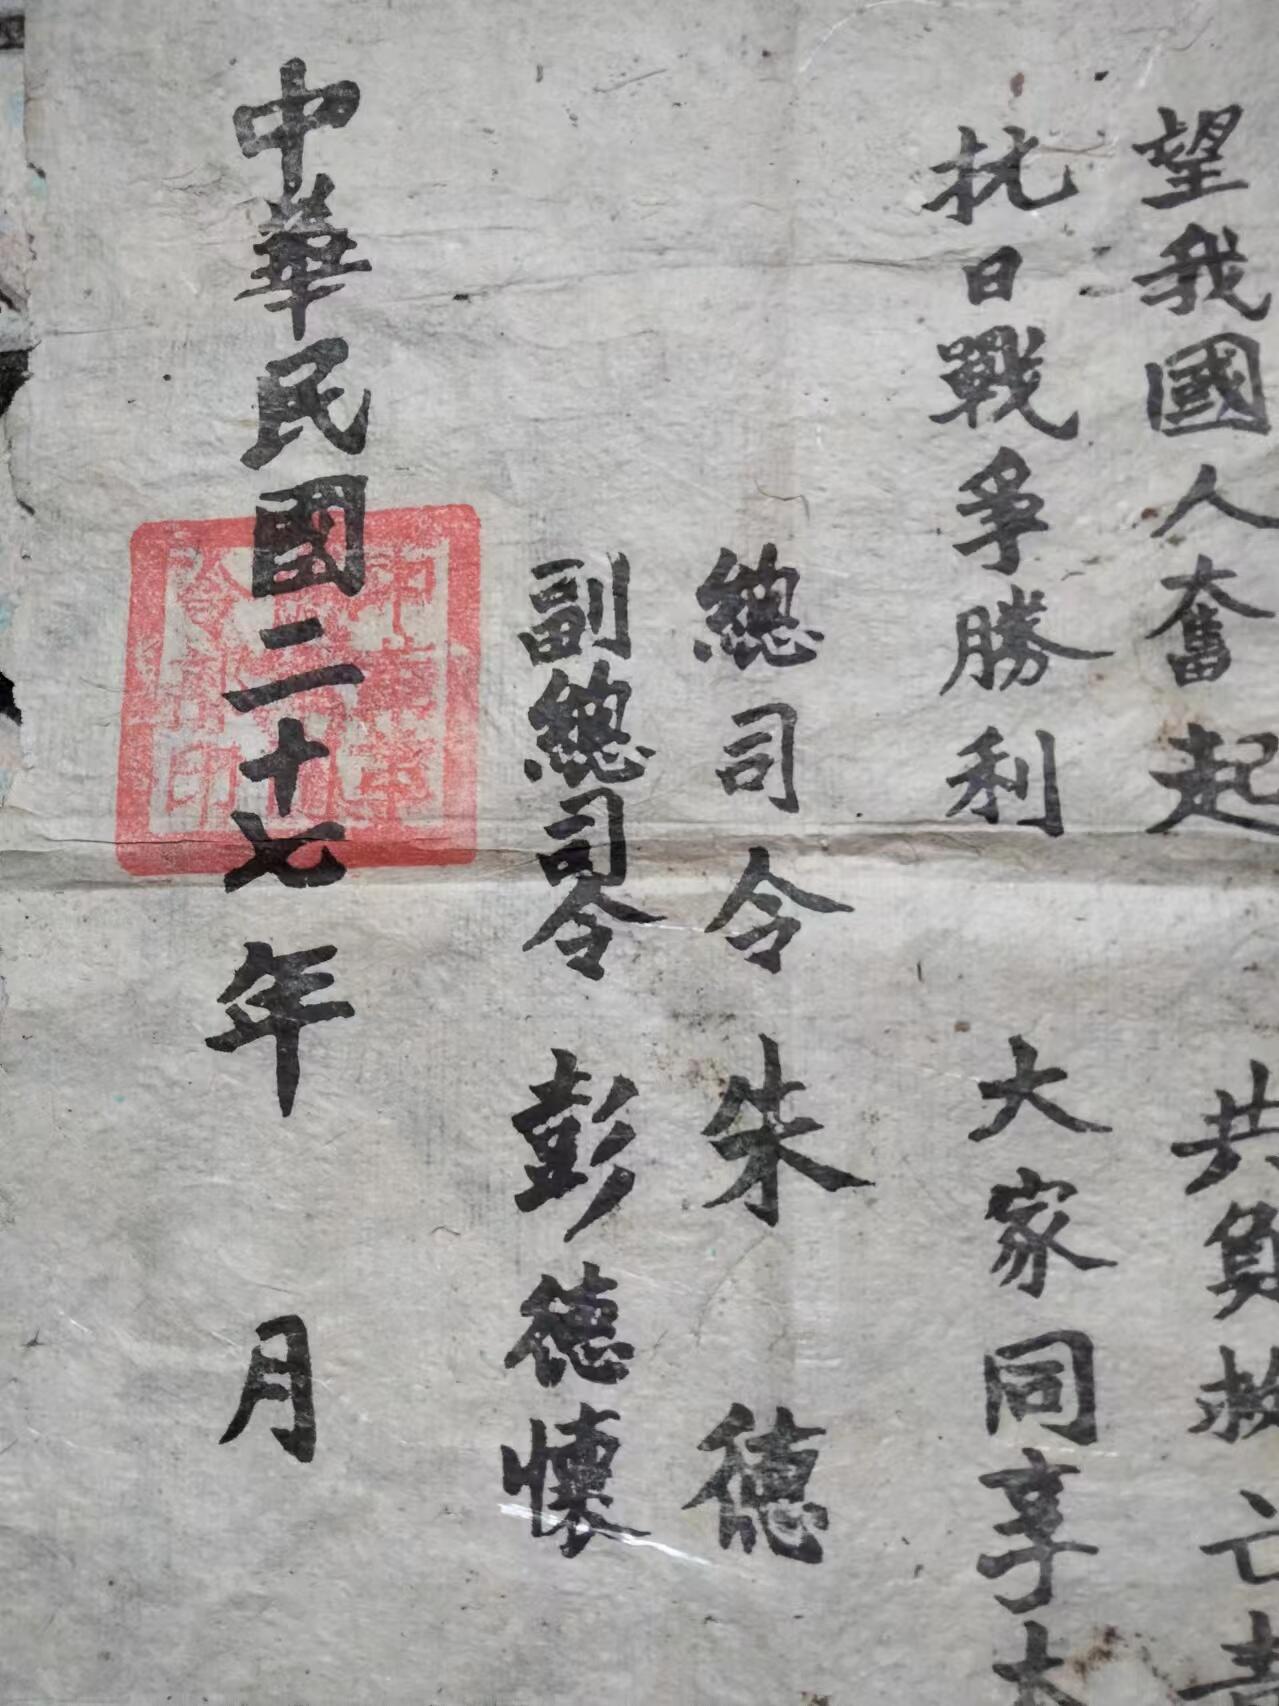 望我國人奮起 共負救亡責
抗日戰爭勝利 大家同享太
總司令 朱德
副總司令 彭德懷
中華民國二十七年 月